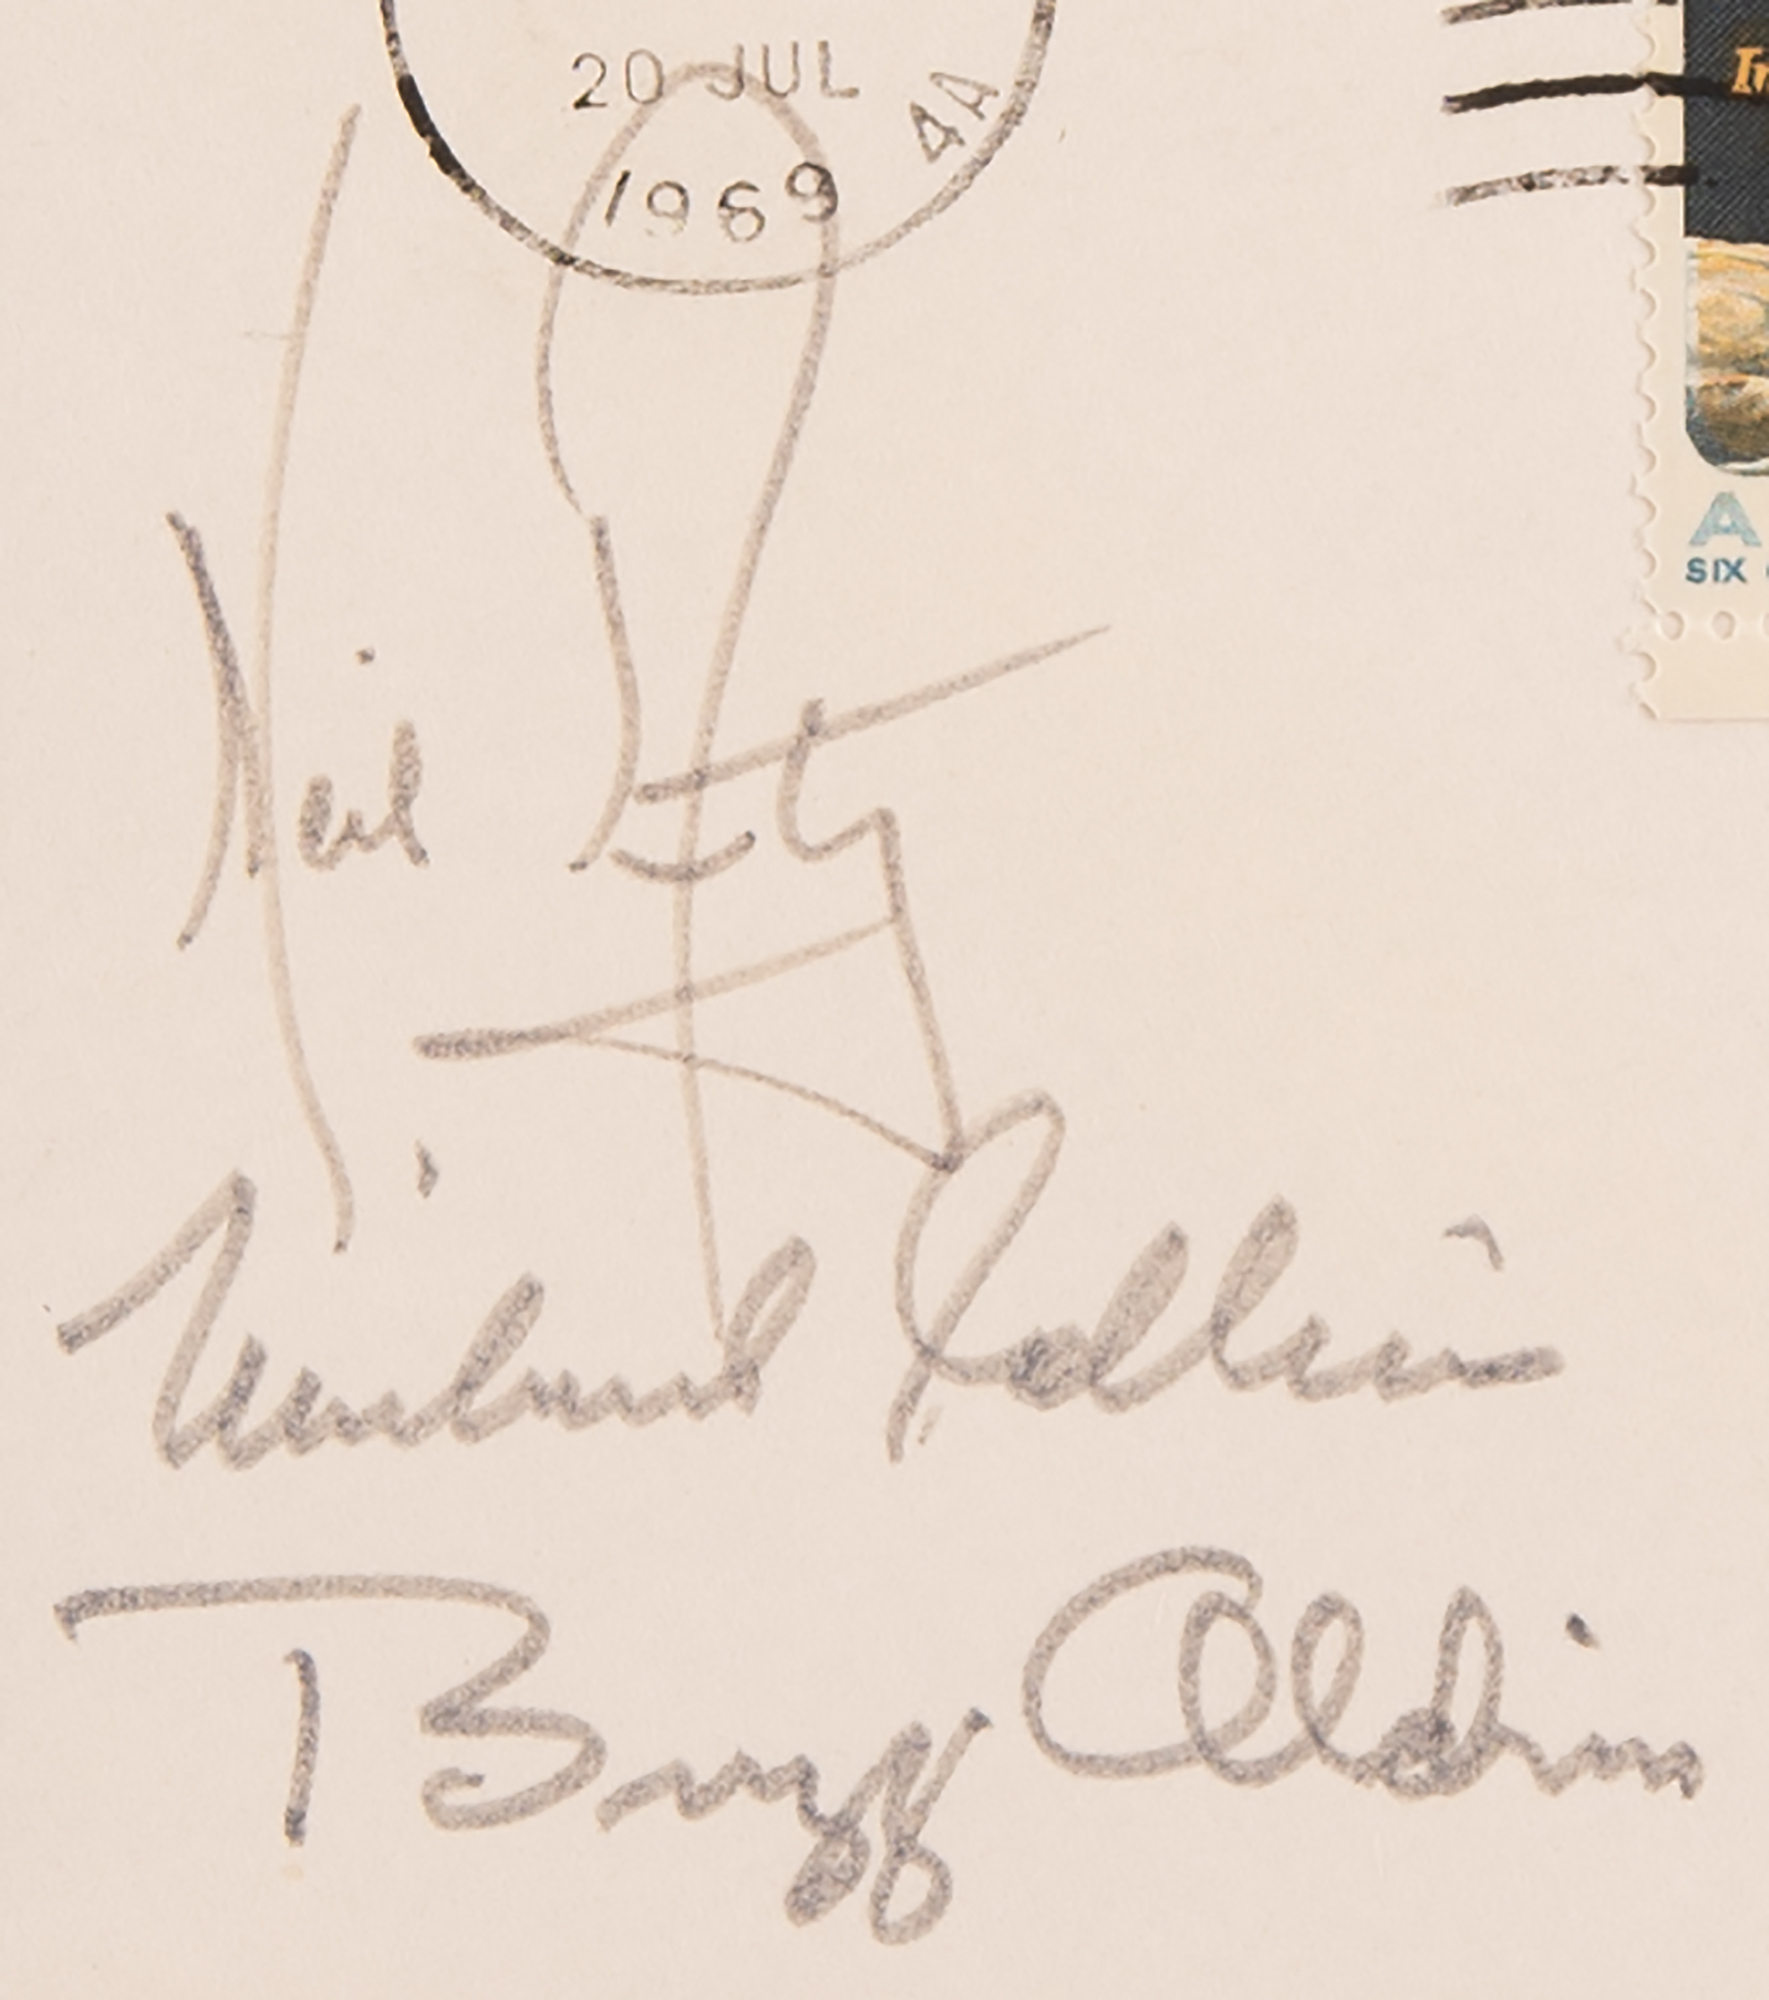 20 JUL
1969
4A
In
A
SIX
Neil
Michael Collins
Buzz Aldrin